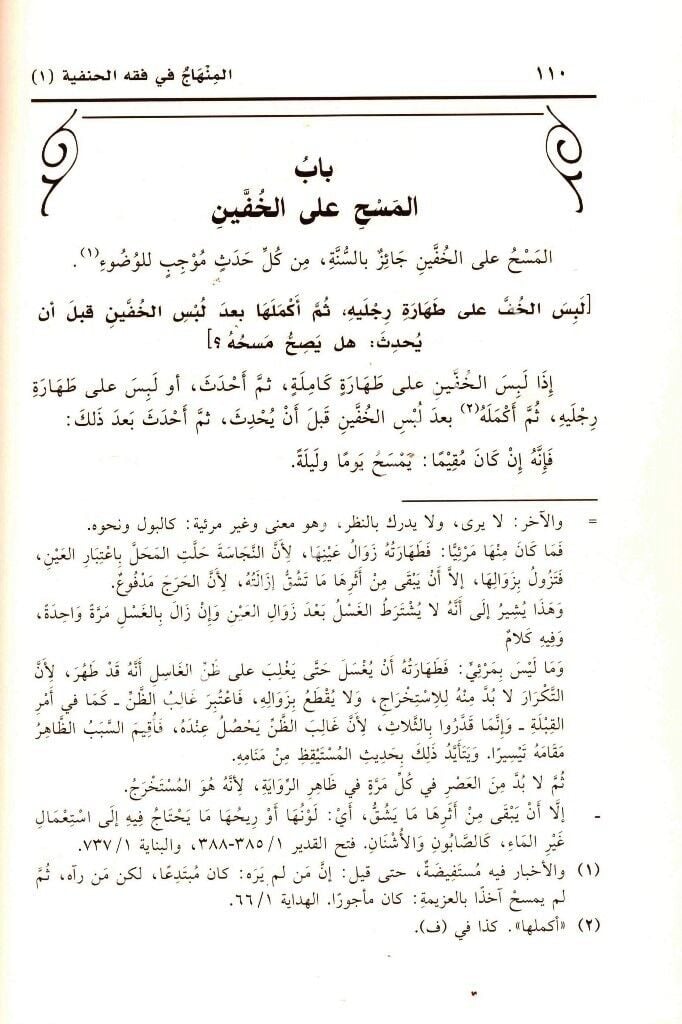 ١١٠ المِنْهَاجُ في فقه الحنفية (١)
بابُ
المَسْحِ على الخُفَّينِ
المَسْحُ على الخُفَّينِ جَائِزٌ بالسُّنَّةِ، مِن كُلِّ حَدَثٍ مُوْجِبٍ للوُضُوءِ(١).
[لَبِسَ الخُفَّ على طَهَارَةِ رِجْلَيهِ، ثُمَّ أَكْمَلَهَا بعدَ لُبْسِ الخُفَّينِ قبلَ أن
يُحدِثَ: هل يَصِحُّ مَسحُهُ؟]
إِذَا لَبِسَ الخُفَّينِ على طَهَارَةٍ كَامِلَةٍ، ثمَّ أَحْدَثَ، أو لَبِسَ على طَهَارَةِ
رِجْلَيهِ، ثُمَّ أَكْمَلَهُ(٢) بعدَ لُبْسِ الخُفَّينِ قَبلَ أَنْ يُحْدِثَ، ثم أَحْدَثَ بَعدَ ذلكَ:
فَإِنَّهُ إِنْ كَانَ مُقِيْمًا: يَمْسَحُ يَومًا ولَيلَةً.
= والآخر: لا يرى، ولا يدرك بالنظر، وهو معنى وغير مرئية: كالبول ونحوه.
فَمَا كَانَ مِنْهَا مَرْئِيًّا: فَطَهَارَتُهُ زَوَالُ عَيْنِهَا، لِأَنَّ النَّجَاسَةَ حَلَّتِ المَحَلَّ بِاعْتِبَارِ العَيْنِ،
فَتَزُولُ بِزَوَالِهَا، إلاَّ أَنْ يَبْقَى مِنْ أَثَرِهَا مَا تَشُقُّ إِزَالَتُهُ، لِأَنَّ الحَرَجَ مَدْفُوعٌ.
وَهَذَا يُشِيرُ إلَى أَنَّهُ لا يُشْتَرَطُ الغَسْلُ بَعْدَ زَوَالِ العَيْنِ وَإِنْ زَالَ بِالغَسْلِ مَرَّةً وَاحِدَةً،
وَفِيهِ كَلامٌ
وَمَا لَيْسَ بِمَرْئِيٍّ: فَطَهَارَتُهُ أَنْ يُغْسَلَ حَتَّى يَغْلِبَ على ظَنِّ الغَاسِلِ أَنَّهُ قَدْ طَهُرَ، لِأَنَّ
التَّكْرَارَ لا بُدَّ مِنْهُ لِلِاسْتِخْرَاجِ، وَلا يُقْطَعُ بِزَوَالِهِ، فَاعْتُبِرَ غَالِبُ الظَّنِّ ـ كَمَا في أَمْرِ
القِبْلَةِ ـ وَإِنَّمَا قَدَّرُوا بِالثَّلاثِ، لِأَنَّ غَالِبَ الظَّنِّ يَحْصُلُ عِنْدَهُ، فَأُقِيمَ السَّبَبُ الظَّاهِرُ
مَقَامَهُ تَيْسِيرًا. وَيَتَأَيَّدُ ذَلِكَ بِحَدِيثِ المُسْتَيْقِظِ مِنْ مَنَامِهِ.
ثُمَّ لا بُدَّ مِنَ العَصْرِ في كُلِّ مَرَّةٍ في ظَاهِرِ الرِّوَايَةِ، لِأَنَّهُ هُوَ المُسْتَخْرِجُ.
ـ إلَّا أَنْ يَبْقَى مِنْ أَثَرِهَا مَا يَشُقُّ، أَيْ: لَوْنُهَا أَوْ رِيحُهَا مَا يَحْتَاجُ فِيهِ إِلَى اسْتِعْمَالِ
غَيْرِ المَاءِ، كَالصَّابُونِ وَالأُشْنَانِ. فتح القدير ٣٨٥/١-٣٨٨، والبناية ٧٣٧/١.
(١) والأخبار فيه مُسْتَفِيضَةٌ، حتى قيل: إنَّ مَن لم يَرَه: كان مُبتَدِعًا، لكن مَن رآه، ثُمَّ
لم يمسحْ آخذًا بالعزيمةِ: كان مأجورًا. الهداية ٦٦/١.
(٢) «أكملها». كذا في (ف).